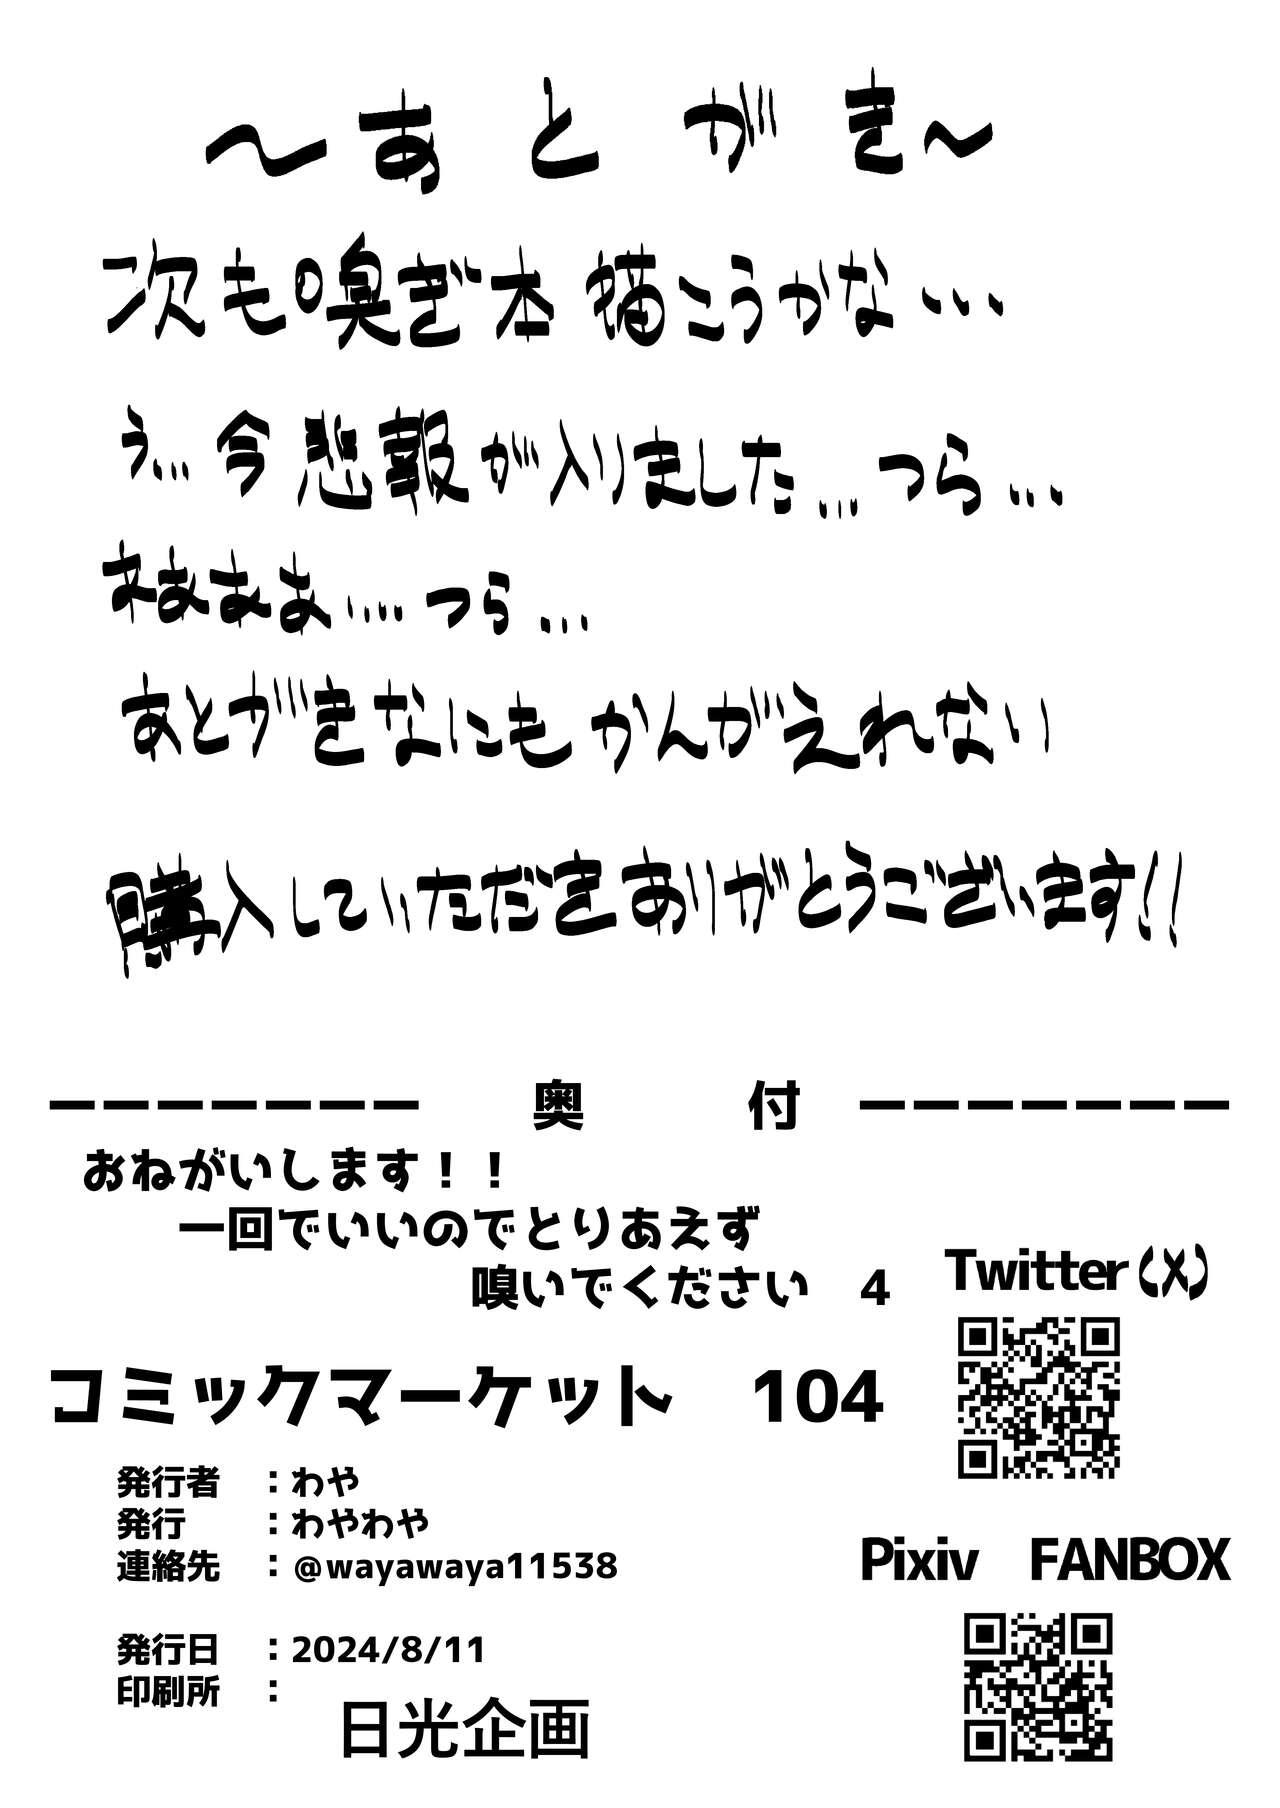 ～あとがき～
次も嗅ぎ本描こうかな...
う...今悲報が入りました...つら...
ねぁぁぁ....つら...
あとがきなにもかんがえれない
購入していただきありがとうございます!!
ーーーーーーー 奥 付 ーーーーーーー
おねがいします！！
一回でいいのでとりあえず
嗅いでください 4
コミックマーケット 104
発行者 ：わや
発行 ：わやわや
連絡先 ：@wayawaya11538
発行日 ：2024/8/11
印刷所 ：
日光企画
Twitter(X)
Pixiv FANBOX